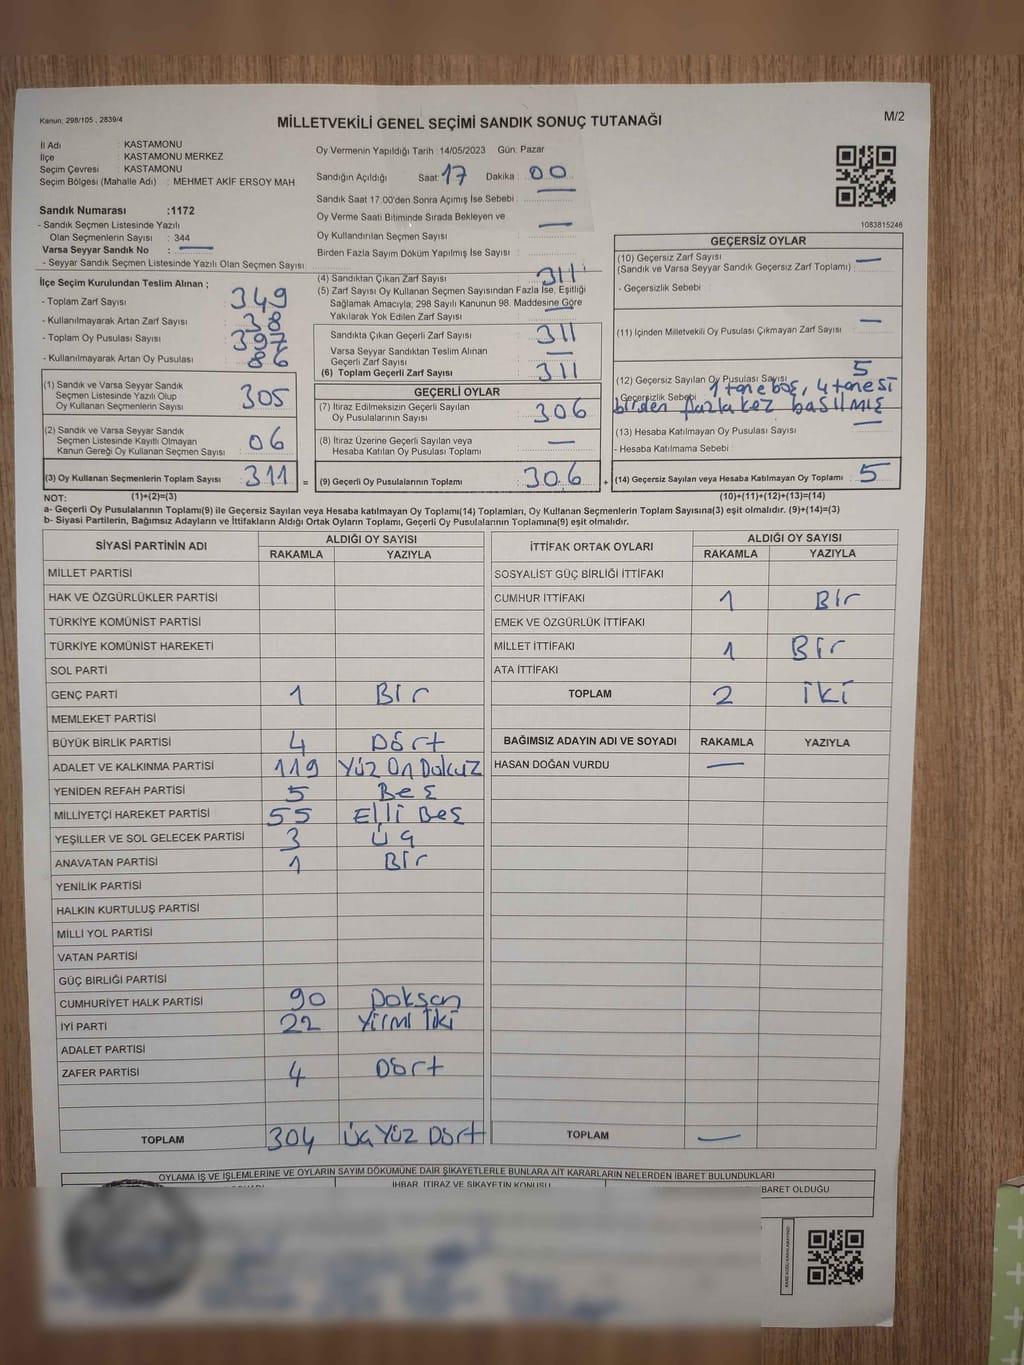 Kanun, 298/105 , 2839/4
MİLLETVEKİLİ GENEL SEÇİMİ SANDIK SONUÇ TUTANAĞI
M/2
İl Adı : KASTAMONU
İlçe : KASTAMONU MERKEZ
Seçim Çevresi : KASTAMONU
Seçim Bölgesi (Mahalle Adı) : MEHMET AKİF ERSOY MAH.
Sandık Numarası :1172
- Sandık Seçmen Listesinde Yazılı
Olan Seçmenlerin Sayısı : 344
Varsa Seyyar Sandık No : —
- Seyyar Sandık Seçmen Listesinde Yazılı Olan Seçmen Sayısı:
Oy Vermenin Yapıldığı Tarih :14/05/2023 Gün: Pazar
Sandığın Açıldığı Saat: 17 Dakika : 00
Sandık Saat 17.00'den Sonra Açılmış İse Sebebi : —
Oy Verme Saati Bitiminde Sırada Bekleyen ve
Oy Kullandırılan Seçmen Sayısı : —
Birden Fazla Sayım Döküm Yapılmış İse Sayısı :
1083815246
İlçe Seçim Kurulundan Teslim Alınan ;
- Toplam Zarf Sayısı : 349
- Kullanılmayarak Artan Zarf Sayısı : 38
- Toplam Oy Pusulası Sayısı : 397
- Kullanılmayarak Artan Oy Pusulası : 86
(1) Sandık ve Varsa Seyyar Sandık
Seçmen Listesinde Yazılı Olup
Oy Kullanan Seçmenlerin Sayısı : 305
(2) Sandık ve Varsa Seyyar Sandık
Seçmen Listesinde Kayıtlı Olmayan
Kanun Gereği Oy Kullanan Seçmen Sayısı : 06
(3) Oy Kullanan Seçmenlerin Toplam Sayısı : 311 =
(4) Sandıktan Çıkan Zarf Sayısı : 311
(5) Zarf Sayısı Oy Kullanan Seçmen Sayısından Fazla İse, Eşitliği
Sağlamak Amacıyla, 298 Sayılı Kanunun 98. Maddesine Göre
Yakılarak Yok Edilen Zarf Sayısı : —
Sandıkta Çıkan Geçerli Zarf Sayısı : 311
Varsa Seyyar Sandıktan Teslim Alınan
Geçerli Zarf Sayısı : —
(6) Toplam Geçerli Zarf Sayısı : 311
GEÇERLİ OYLAR
(7) İtiraz Edilmeksizin Geçerli Sayılan
Oy Pusulalarının Sayısı : 306
(8) İtiraz Üzerine Geçerli Sayılan veya
Hesaba Katılan Oy Pusulası Toplamı : —
(9) Geçerli Oy Pusulalarının Toplamı : 306 +
GEÇERSİZ OYLAR
(10) Geçersiz Zarf Sayısı
(Sandık ve Varsa Seyyar Sandık Geçersiz Zarf Toplamı) : —
- Geçersizlik Sebebi :
(11) İçinden Milletvekili Oy Pusulası Çıkmayan Zarf Sayısı : —
(12) Geçersiz Sayılan Oy Pusulası Sayısı : 5
- Geçersizlik Sebebi : 1 tane boş, 4 tanesi
birden fazla kez basılmış
(13) Hesaba Katılmayan Oy Pusulası Sayısı : —
- Hesaba Katılmama Sebebi :
(14) Geçersiz Sayılan veya Hesaba Katılmayan Oy Toplamı : 5
NOT: (1)+(2)=(3) (10)+(11)+(12)+(13)=(14)
a- Geçerli Oy Pusulalarının Toplamı(9) ile Geçersiz Sayılan veya Hesaba katılmayan Oy Toplamı(14) Toplamları, Oy Kullanan Seçmenlerin Toplam Sayısına(3) eşit olmalıdır. (9)+(14)=(3)
b- Siyasi Partilerin, Bağımsız Adayların ve İttifakların Aldığı Ortak Oyların Toplamı, Geçerli Oy Pusulalarının Toplamına(9) eşit olmalıdır.
SİYASİ PARTİNİN ADI ALDIĞI OY SAYISI
RAKAMLA YAZIYLA
MİLLET PARTİSİ
HAK VE ÖZGÜRLÜKLER PARTİSİ
TÜRKİYE KOMÜNİST PARTİSİ
TÜRKİYE KOMÜNİST HAREKETİ
SOL PARTİ
GENÇ PARTİ 1 Bir
MEMLEKET PARTİSİ
BÜYÜK BİRLİK PARTİSİ 4 Dört
ADALET VE KALKINMA PARTİSİ 119 Yüz On Dokuz
YENİDEN REFAH PARTİSİ 5 Beş
MİLLİYETÇİ HAREKET PARTİSİ 55 Elli Beş
YEŞİLLER VE SOL GELECEK PARTİSİ 3 Üç
ANAVATAN PARTİSİ 1 Bir
YENİLİK PARTİSİ
HALKIN KURTULUŞ PARTİSİ
MİLLİ YOL PARTİSİ
VATAN PARTİSİ
GÜÇ BİRLİĞİ PARTİSİ
CUMHURİYET HALK PARTİSİ 90 Doksan
İYİ PARTİ 22 Yirmi İki
ADALET PARTİSİ
ZAFER PARTİSİ 4 Dört
TOPLAM 304 Üç Yüz Dört
İTTİFAK ORTAK OYLARI ALDIĞI OY SAYISI
RAKAMLA YAZIYLA
SOSYALİST GÜÇ BİRLİĞİ İTTİFAKI
CUMHUR İTTİFAKI 1 Bir
EMEK VE ÖZGÜRLÜK İTTİFAKI
MİLLET İTTİFAKI 1 Bir
ATA İTTİFAKI
TOPLAM 2 İki
BAĞIMSIZ ADAYIN ADI VE SOYADI RAKAMLA YAZIYLA
HASAN DOĞAN VURDU —
TOPLAM —
OYLAMA İŞ VE İŞLEMLERİNE VE OYLARIN SAYIM DÖKÜMÜNE DAİR ŞİKAYETLERLE BUNLARA AİT KARARLARIN NELERDEN İBARET BULUNDUKLARI
İHBAR, İTİRAZ VE ŞİKAYETİN KONUSU
İBARET OLDUĞU